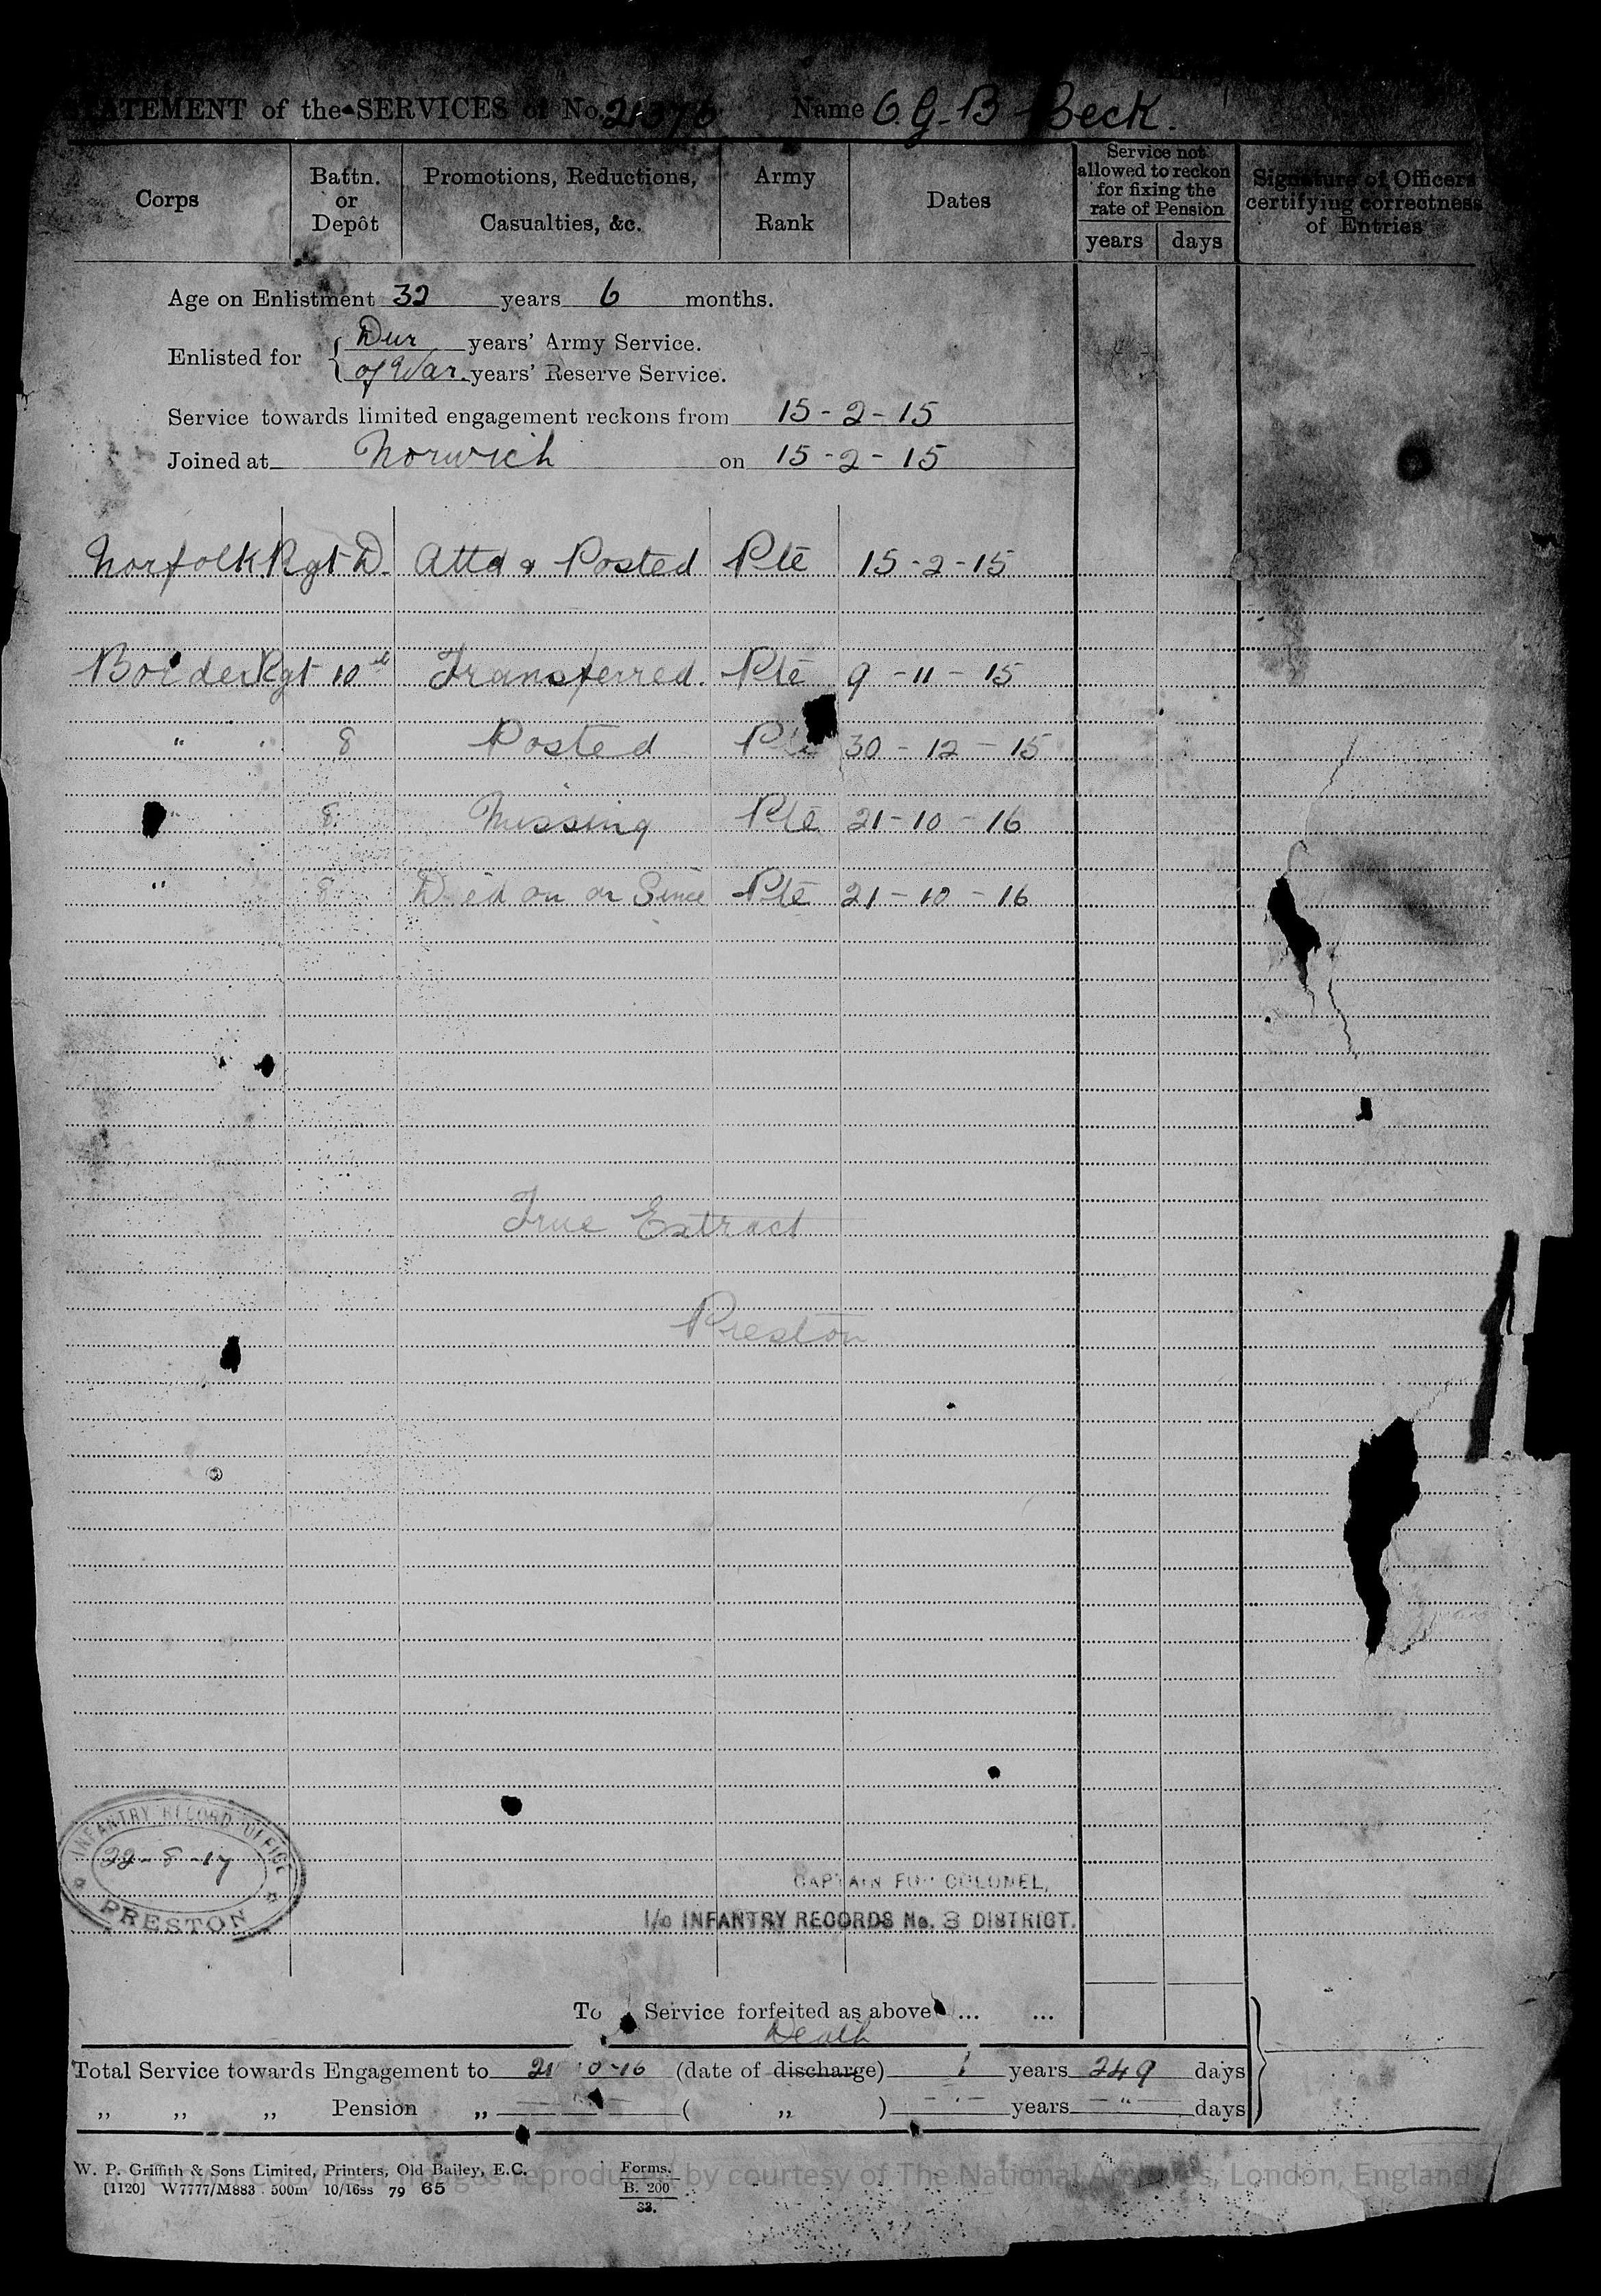 STATEMENT of the SERVICES of No. Name G. B Beck.
Corps
Battn. or Depôt
Promotions, Reductions, Casualties, &c.
Army Rank
Dates
Service not allowed to reckon for fixing the rate of Pension
years days
Signature of Officers certifying correctness of Entries
Age on Enlistment 32 years 6 months.
Enlisted for Dur years' Army Service.
of War. years' Reserve Service.
Service towards limited engagement reckons from 15-2-15
Joined at Norwich on 15-2-15
Norfolk Rgt D. Attd & Posted Pte 15-2-15
Border Rgt 10th Transferred. Pte 9-11-15
" 8 Posted Pte 30-12-15
8 Missing Pte 21-10-16
" 8 Died on or Since Pte 21-10-16
True Extract
Preston
INFANTRY RECORD OFFICE
22-8-17
PRESTON
CAPTAIN FOR COLONEL,
I/c INFANTRY RECORDS No. 3 DISTRICT.
Service forfeited as above ... ...
Death
Total Service towards Engagement to 21 10-16 (date of discharge) 1 years 249 days
„ „ „ Pension „ ( „ ) - " - years - " - days
W. P. Griffith & Sons Limited, Printers, Old Bailey, E.C.
[1120] W7777/M883 500m 10/16ss 79 65
Forms.
B. 200
33.
images reproduced by courtesy of The National Archives, London, England